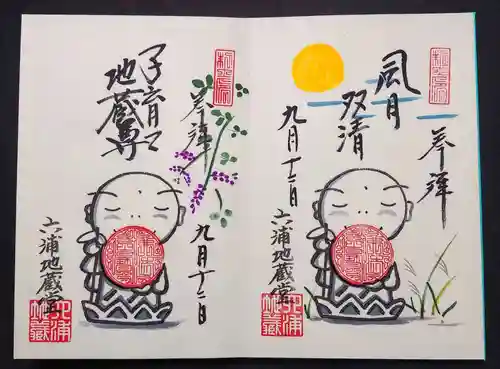 奉拝
風月
双清
九月十二日
六浦地蔵堂
六浦
地蔵
奉拝
子育て
地蔵尊
九月十二日
六浦地蔵堂
六浦
地蔵